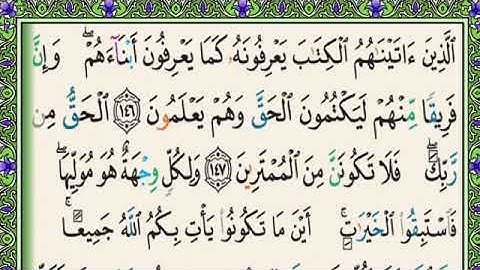 الَّذِينَ ءَاتَيْنَـٰهُمُ الْكِتَـٰبَ يَعْرِفُونَهُۥ كَمَا يَعْرِفُونَ أَبْنَآءَهُمْ ۖ وَإِنَّ
فَرِيقًا مِّنْهُمْ لَيَكْتُمُونَ الْحَقَّ وَهُمْ يَعْلَمُونَ ١٤٦ الْحَقُّ مِن
رَّبِّكَ ۖ فَلَا تَكُونَنَّ مِنَ الْمُمْتَرِينَ ١٤٧ وَلِكُلٍّ وِجْهَةٌ هُوَ مُوَلِّيهَا ۖ
فَاسْتَبِقُوا الْخَيْرَٰتِ ۚ أَيْنَ مَا تَكُونُوا يَأْتِ بِكُمُ اللَّهُ جَمِيعًا ۚ